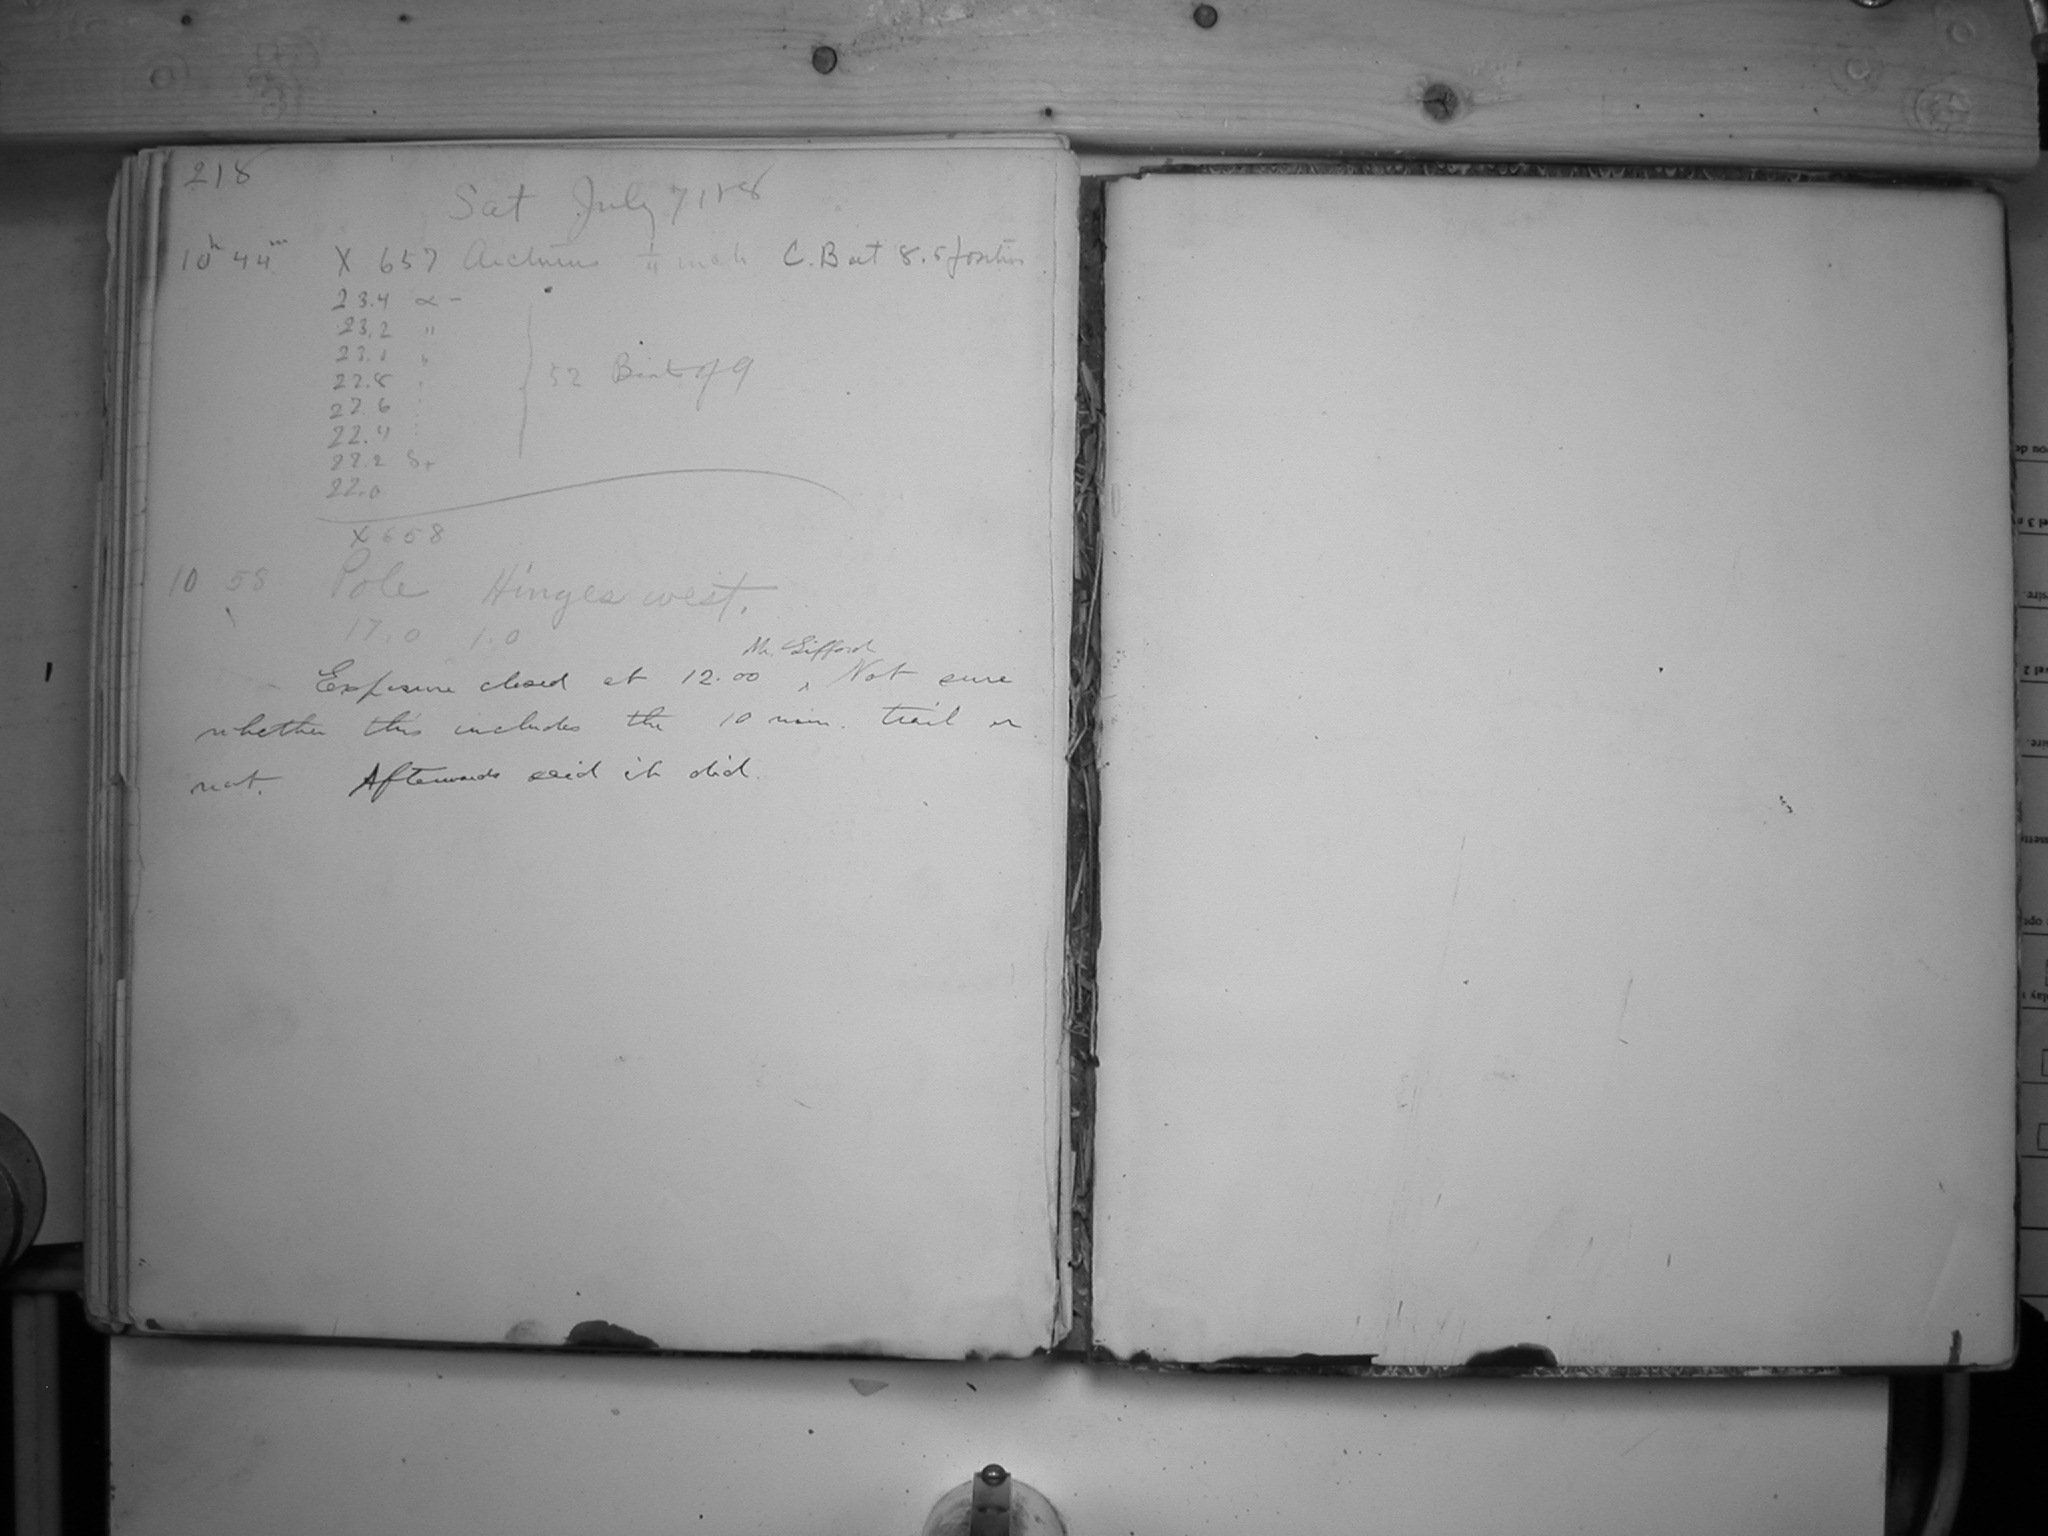 218
Sat July 7 188
10h 44m X 657 Arcturus 1/4 inch C. Bat 8.5 position
23.4 α -
23.2 "
23.1 "
22.8 "
22.6
22.4
22.2
22.0
52 Beats of 9
X 658
10 58 Pole Hinges west.
17.0 1.0
Mr. Gifford
Exposure closed at 12.00 ‸ Not sure
whether this includes the 10 min. trail or
not. Afterwards said it did.